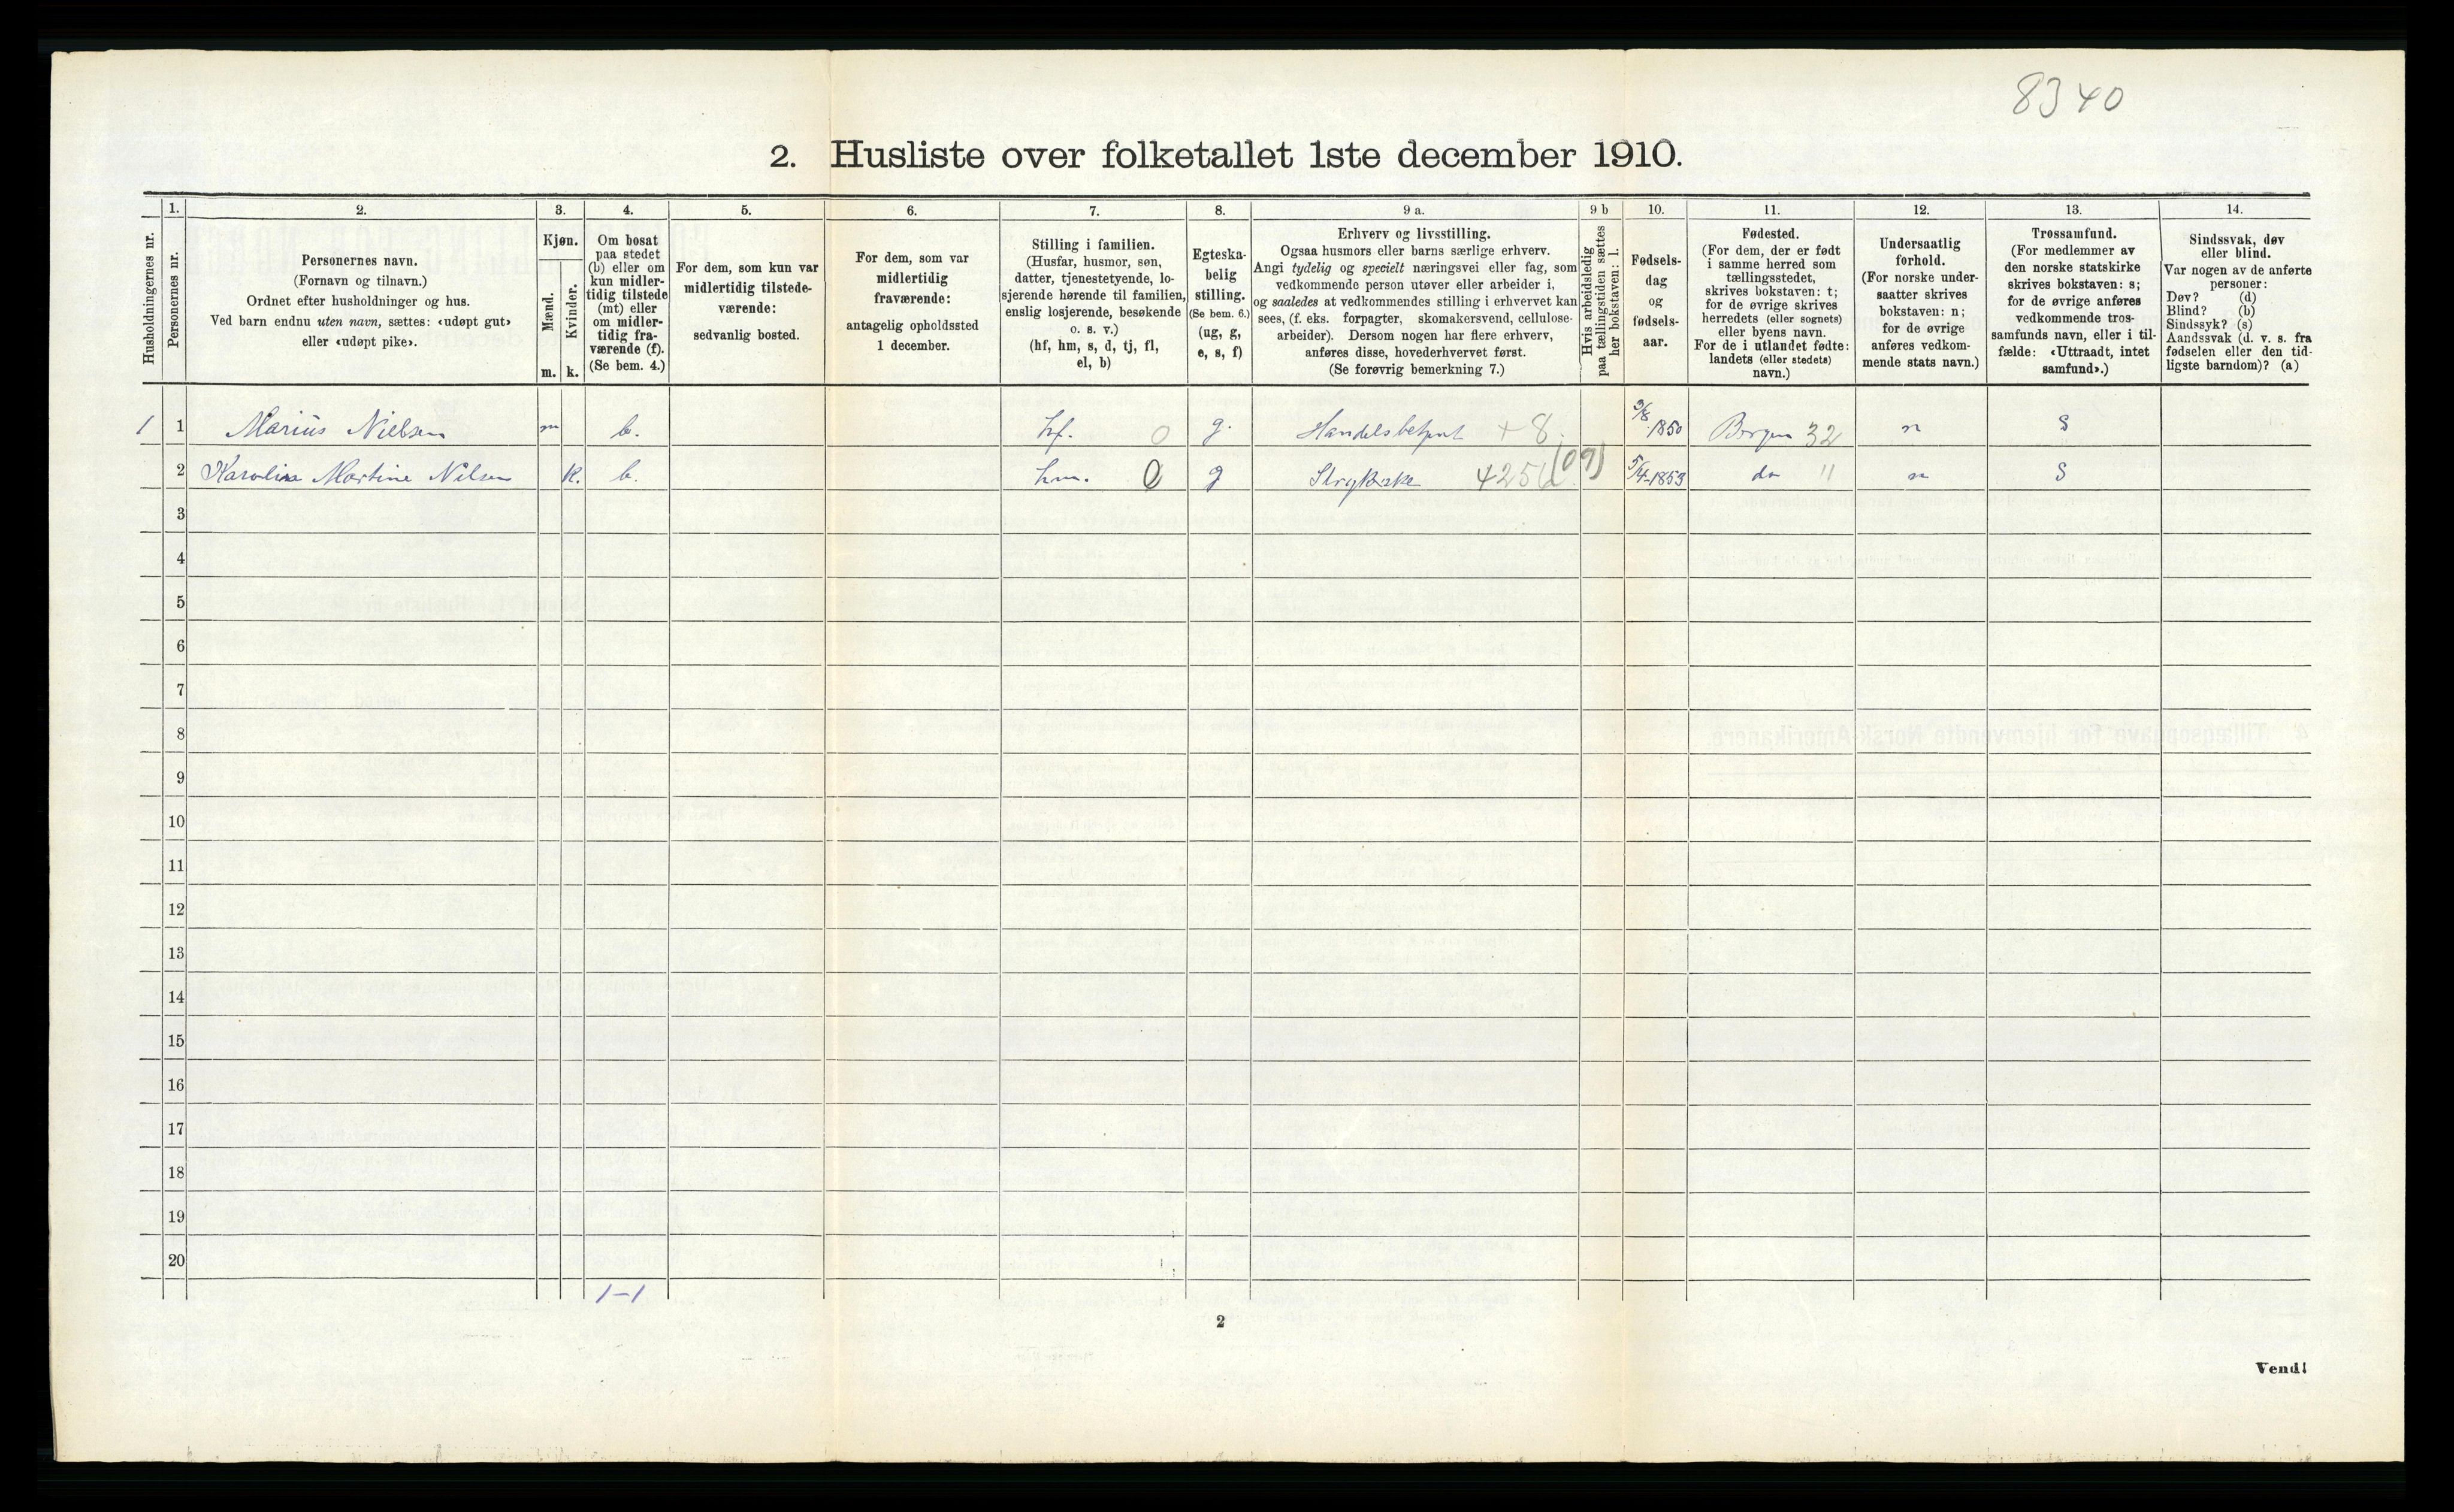 8340
2. Husliste over folketallet 1ste december 1910.
Husholdningernes nr.
1.
Personernes nr.
2.
Personernes navn.
(Fornavn og tilnavn.)
Ordnet efter husholdninger og hus.
Ved barn endnu uten navn, sættes: «udøpt gut»
eller «udøpt pike».
3.
Kjøn.
Mænd.
Kvinder.
m. k.
4.
Om bosat
paa stedet
(b) eller om
kun midler-
tidig tilstede
(mt) eller
om midler-
tidig fra-
værende (f).
(Se bem. 4.)
5.
For dem, som kun var
midlertidig tilstede-
værende:
sedvanlig bosted.
6.
For dem, som var
midlertidig
fraværende:
antagelig opholdssted
1 december.
7.
Stilling i familien.
(Husfar, husmor, søn,
datter, tjenestetyende, lo-
sjerende hørende til familien,
enslig losjerende, besøkende
o. s. v.)
(hf, hm, s, d, tj, fl,
el, b)
8.
Egteska-
belig
stilling.
(Se bem. 6.)
(ug, g,
e, s, f)
9 a.
Erhverv og livsstilling.
Ogsaa husmors eller barns særlige erhverv.
Angi tydelig og specielt næringsvei eller fag, som
vedkommende person utøver eller arbeider i,
og saaledes at vedkommendes stilling i erhvervet kan
sees, (f. eks. forpagter, skomakersvend, cellulose-
arbeider). Dersom nogen har flere erhverv,
anføres disse, hovederhvervet først.
(Se forøvrig bemerkning 7.)
9 b
Hvis arbeidsledig
paa tællingstiden sættes
her bokstaven: l.
10.
Fødsels-
dag
og
fødsels-
aar.
11.
Fødested.
(For dem, der er født
i samme herred som
tællingsstedet,
skrives bokstaven: t;
for de øvrige skrives
herredets (eller sognets)
eller byens navn.
For de i utlandet fødte:
landets (eller stedets)
navn.)
12.
Undersaatlig
forhold.
(For norske under-
saatter skrives
bokstaven: n;
for de øvrige
anføres vedkom-
mende stats navn.)
13.
Trossamfund.
(For medlemmer av
den norske statskirke
skrives bokstaven: s;
for de øvrige anføres
vedkommende tros-
samfunds navn, eller i til-
fælde: «Uttraadt, intet
samfund».)
14.
Sindssvak, døv
eller blind.
Var nogen av de anførte
personer:
Døv? (d)
Blind? (b)
Sindssyk? (s)
Aandssvak (d. v. s. fra
fødselen eller den tid-
ligste barndom)? (a)
1 1 Marius Nielsen m b. hf. 0 g. + 8. 3/8 1850 Bergen 32 n S
2 Karolina Martine Nilsen K. b. hm. 0 g 5/4-1853 do " n S
3
4
5
6
7
8
9
10
11
12
13
14
15
16
17
18
19
20
1-1
2
Vend!